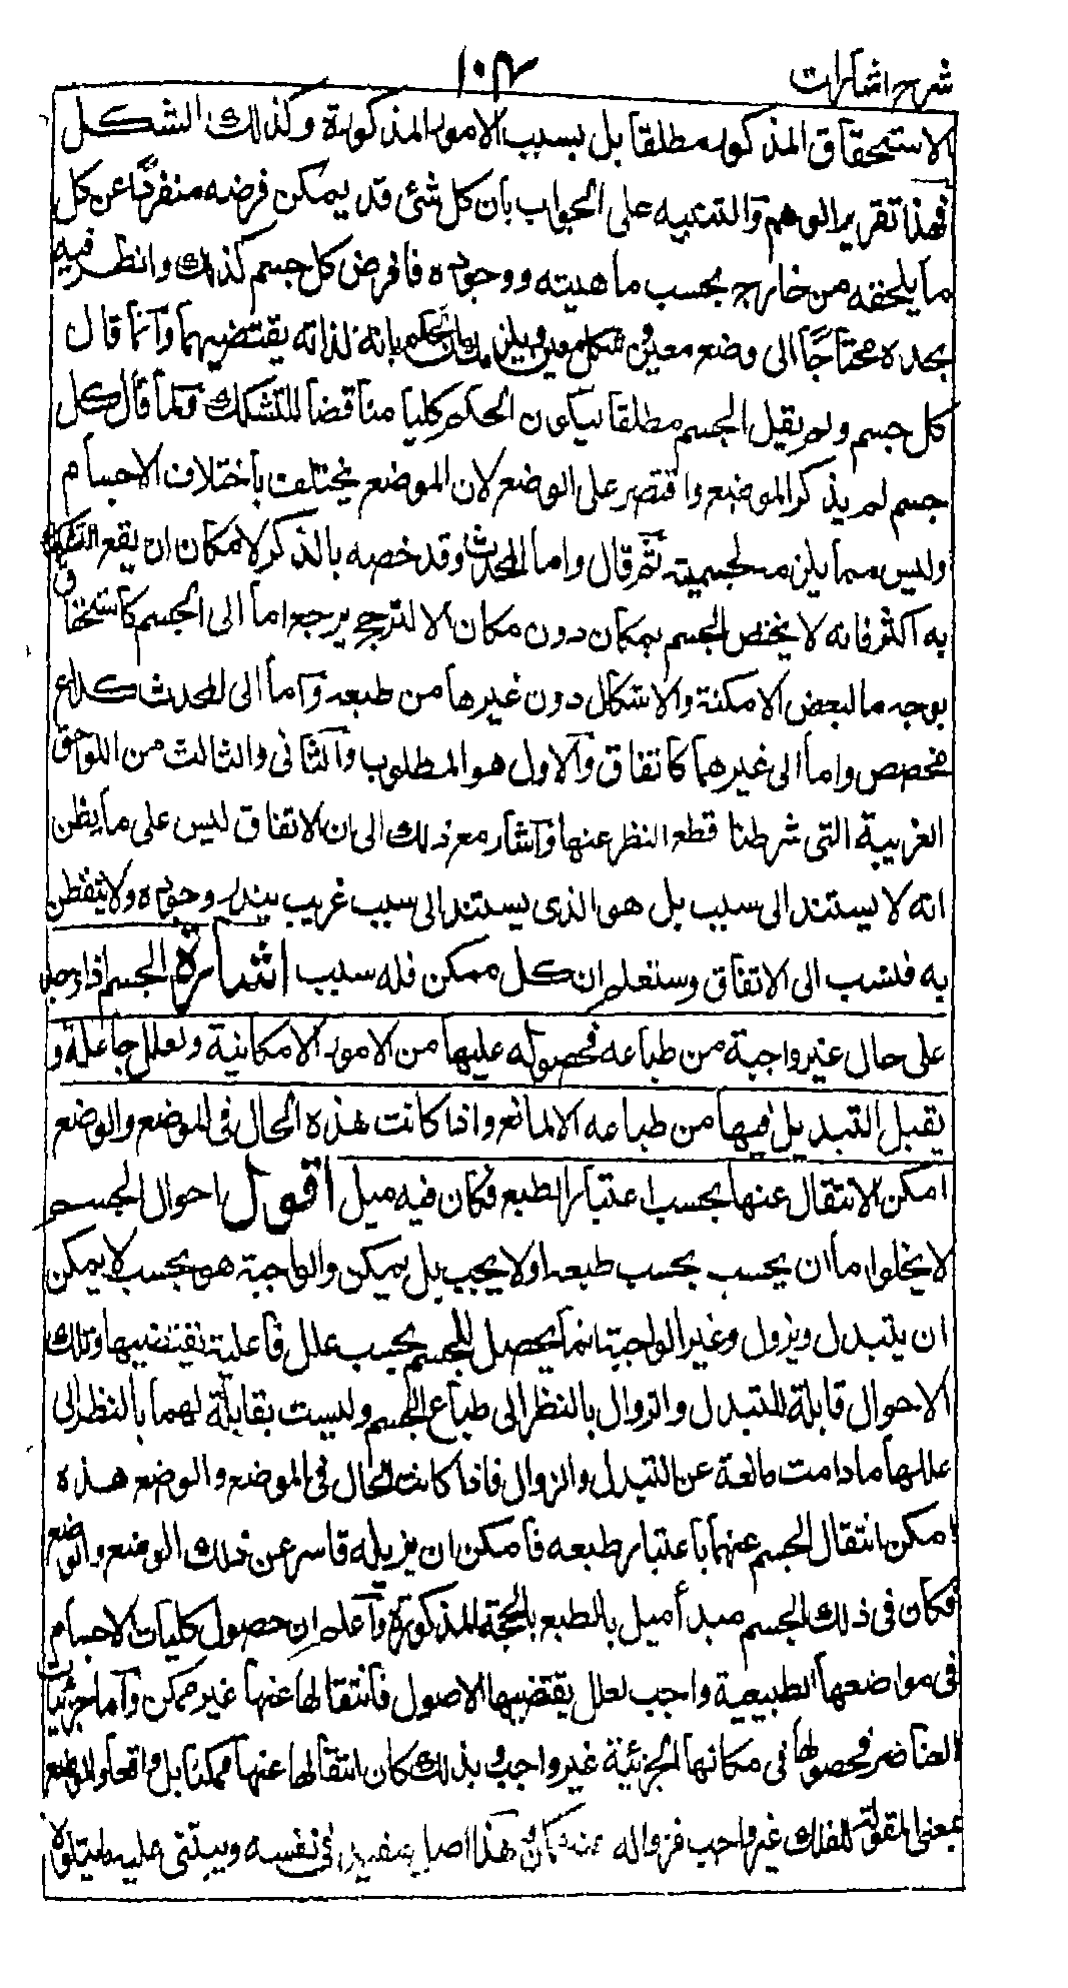 شرح اشارات
١٠٤
الاستحقاق المذكور مطلقا بل بسبب الامور المذكورة وكذلك الشكل
فهذا تقرير الوهم والتنبيه على الجواب بان كل شئ قد يمكن فرضه منفردا عن كل
ما يلحقه من خارج بحسب ماهيته ووجوده فافرض كل جسم كذلك وانظر فيه
تجده محتاجا الى وضع معين وشكل معين ويلزمك ان تحكم بانه لذاته يقتضيهما وانما قال
كل جسم ولم يقيل الجسم مطلقا ليكون الحكم كليا مناقضا للتشكك ولما قال كل
جسم لم يذكر الموضع واقتصر على الوضع لان الموضع يختلف باختلاف الاجسام
وليس مما يلزم لجسميته ثم قال واما المحدث وقد خصه بالذكر لامكان ان يقع التشكك
به اكثر فانه لا يختص الجسم بمكان دون مكان الا لترجيح يرجع اما الى الجسم كاستحقاق
بوجه ما لبعض الامكنة والاشكال دون غيرها من طبعه واما الى المحدث كداع
مخصص واما الى غيرهما كاتفاق والاول هو المطلوب والثانى والثالث من اللواحق
الغريبة التى شرطنا قطع النظر عنها واشار مع ذلك الى ان الاتفاق ليس على ما يظن
انه لا يستند الى سبب بل هو الذى يستند الى سبب غريب يندر وجوده ولا يتفطن
به فنسب الى الاتفاق وستعلم ان كل ممكن فله سبب اشارة الجسم اذا وجد
على حال غير واجبة من طباعه فحصوله عليها من الامور الامكانية ولعلل جاعلة و
يقبل التبديل فيها من طباعه الا لمانع واذا كانت هذه الحال فى الموضع والوضع
امكن الانتقال عنها بحسب اعتبار الطبع فكان فيه ميل اقول احوال الجسم
لا يخلوا ما ان يحسب بحسب طبعه او لا يجب بل يمكن والواجبة هو بحسب لا يمكن
ان يتبدل ويزول وغير الواجبة انما يحصل للجسم بحسب علل فاعلية تقتضيها وتلك
الاحوال قابلة للتبدل والزوال بالنظر الى طباع الجسم وليست بقابلة لهما بالنظر الى
عللها ما دامت مانعة عن التبدل والزوال فاذا كانت الحال فى الموضع والوضع هذه
امكن انتقال الجسم عنهما باعتبار طبعه فامكن ان يزيله قاسر عن ذلك الوضع والوضع
فكان فى ذلك الجسم مبدأ ميل بالطبع بالحجة المذكورة واعلم ان حصول كليات الاجسام
فى مواضعها الطبيعية واجب لعلل يقتضيها الاصول فانتقالها عنها غير ممكن واما جزئيات
العناصر فحصولها فى مكانها الجزئية غير واجب وبذلك كان انتقالها عنها ممكنا بل واقعا والوضع
بمعنى المقولة للفلك غير واجب فزواله هذا اصل مفيد فى نفسه ويبتنى عليه ما يتلوه